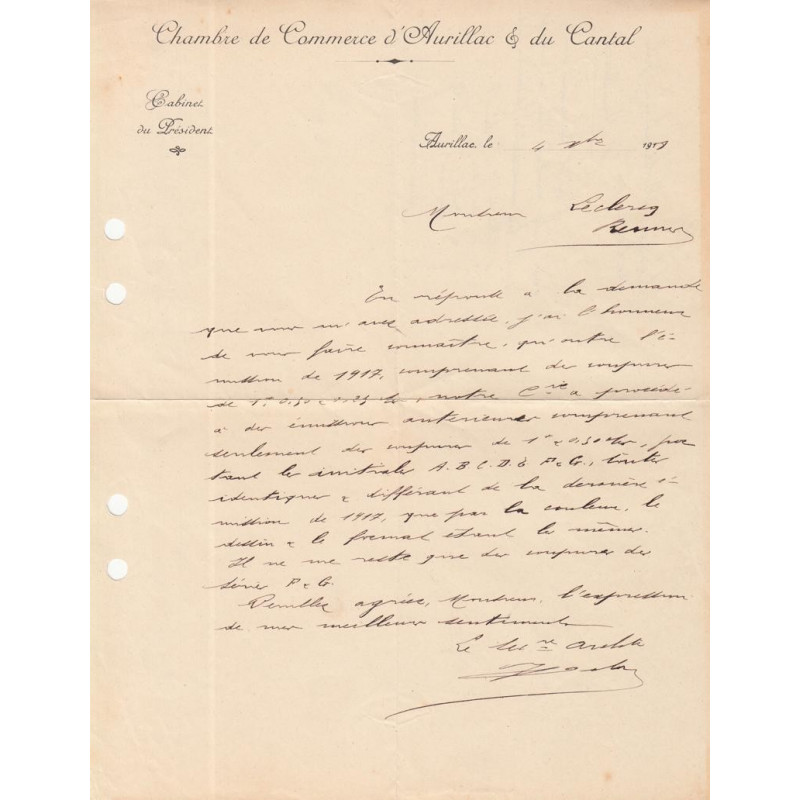 Chambre de Commerce d'Aurillac & du Cantal
Cabinet
du Président
Aurillac, le 4 xbre 1919
Monsieur Leclercq
Rennes
En réponse à la demande
que vous m'avez adressée, j'ai l'honneur
de vous faire connaître, qu'outre l'é-
mission de 1917, comprenant des coupures
de 1f. 0,50 & 0,25, notre Cie a procédé
à des émissions antérieures comprenant
seulement des coupures de 1f & 0,50, por
tant les initiales A. B. C. D. E F & G., toutes
identiques & différant de la dernière é-
mission de 1917, que par la couleur, le
dessin & le format étant les mêmes.
Il ne me reste que des coupures des
séries F & G.
Veuillez agréer, Monsieur, l'expression
de mes meilleurs sentiments
Le Secre